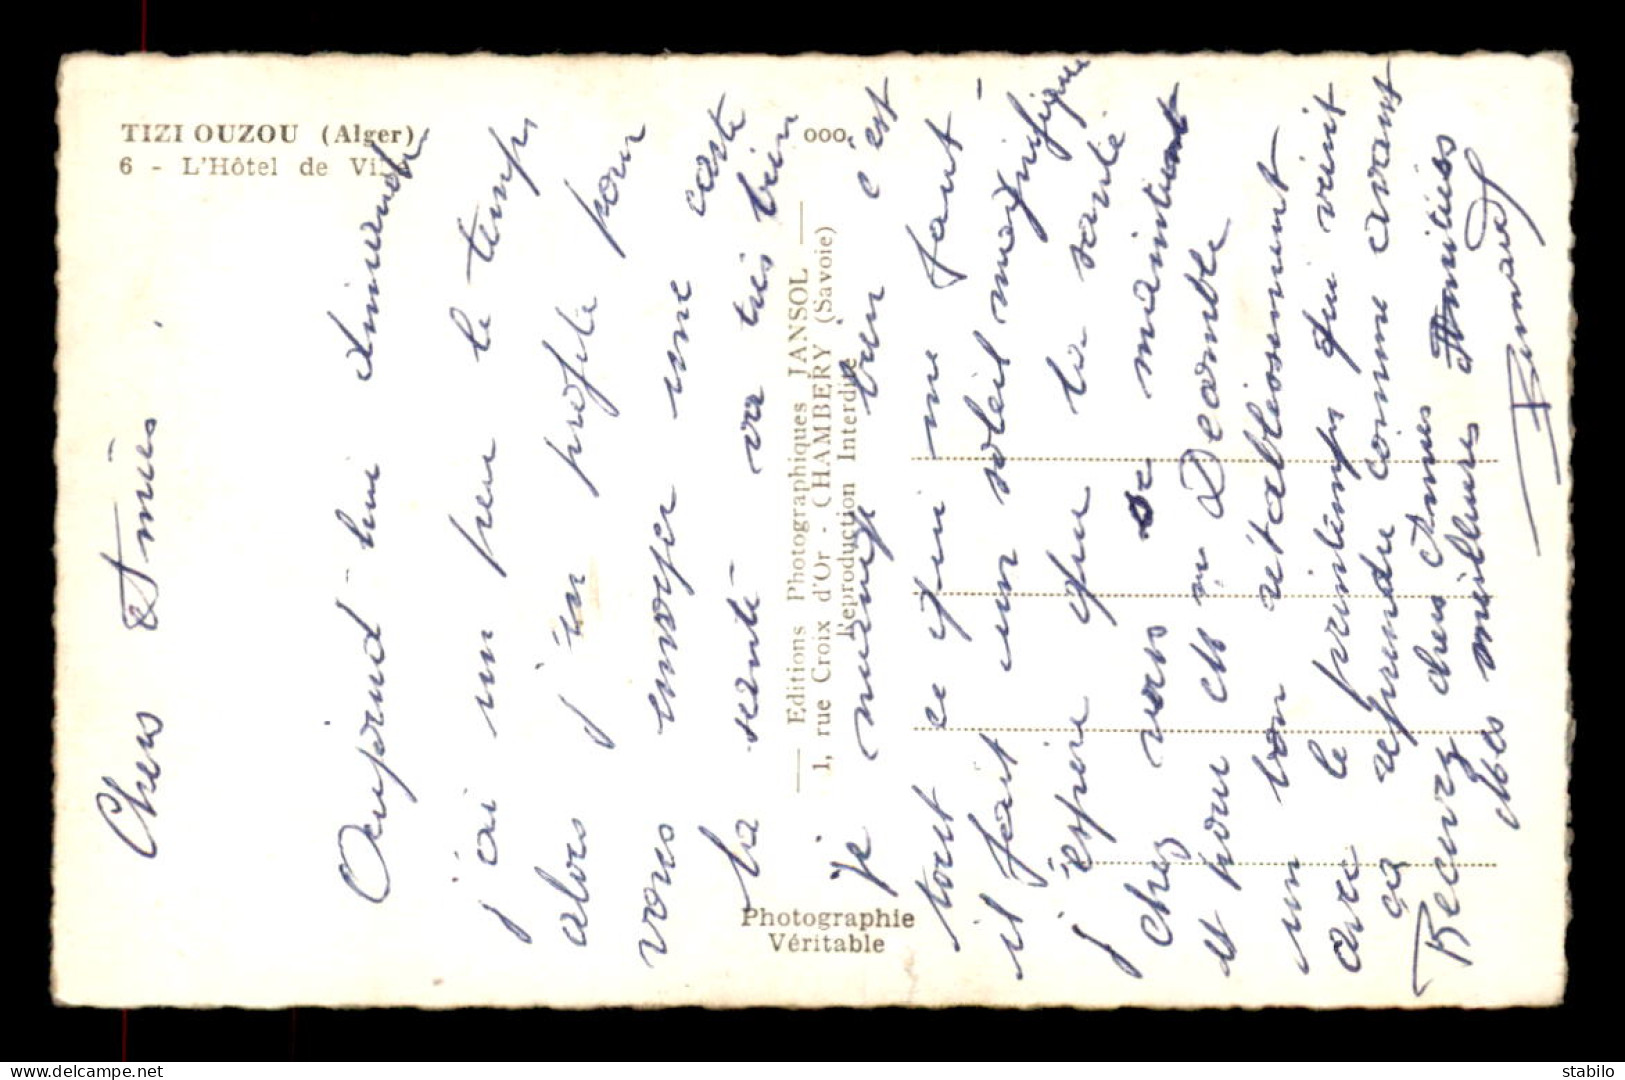 TIZI OUZOU (Alger)
6 - L'Hôtel de Vi
ooo
Editions Photographiques JANSOL
1, rue Croix d'Or - CHAMBÉRY (Savoie)
Reproduction Interdite
Photographie
Véritable
Chers Amies
Aujourd'hui dimanche
j'ai un peu le temps
alors j'en profite pour
vous envoyer une carte
la santé va très bien
je mange bien c'est
tout ce qui me faut -
il fait un soleil magnifique
j'espère que la santé
chez vous se maintient
et pour cet m Decomble
un bon rétablissement
avec le printemps qui vient
ça reprendu comme avant
Recevez chers Amies Amitiés
Mes meilleures
Bernard
delcampe.net
stabilo